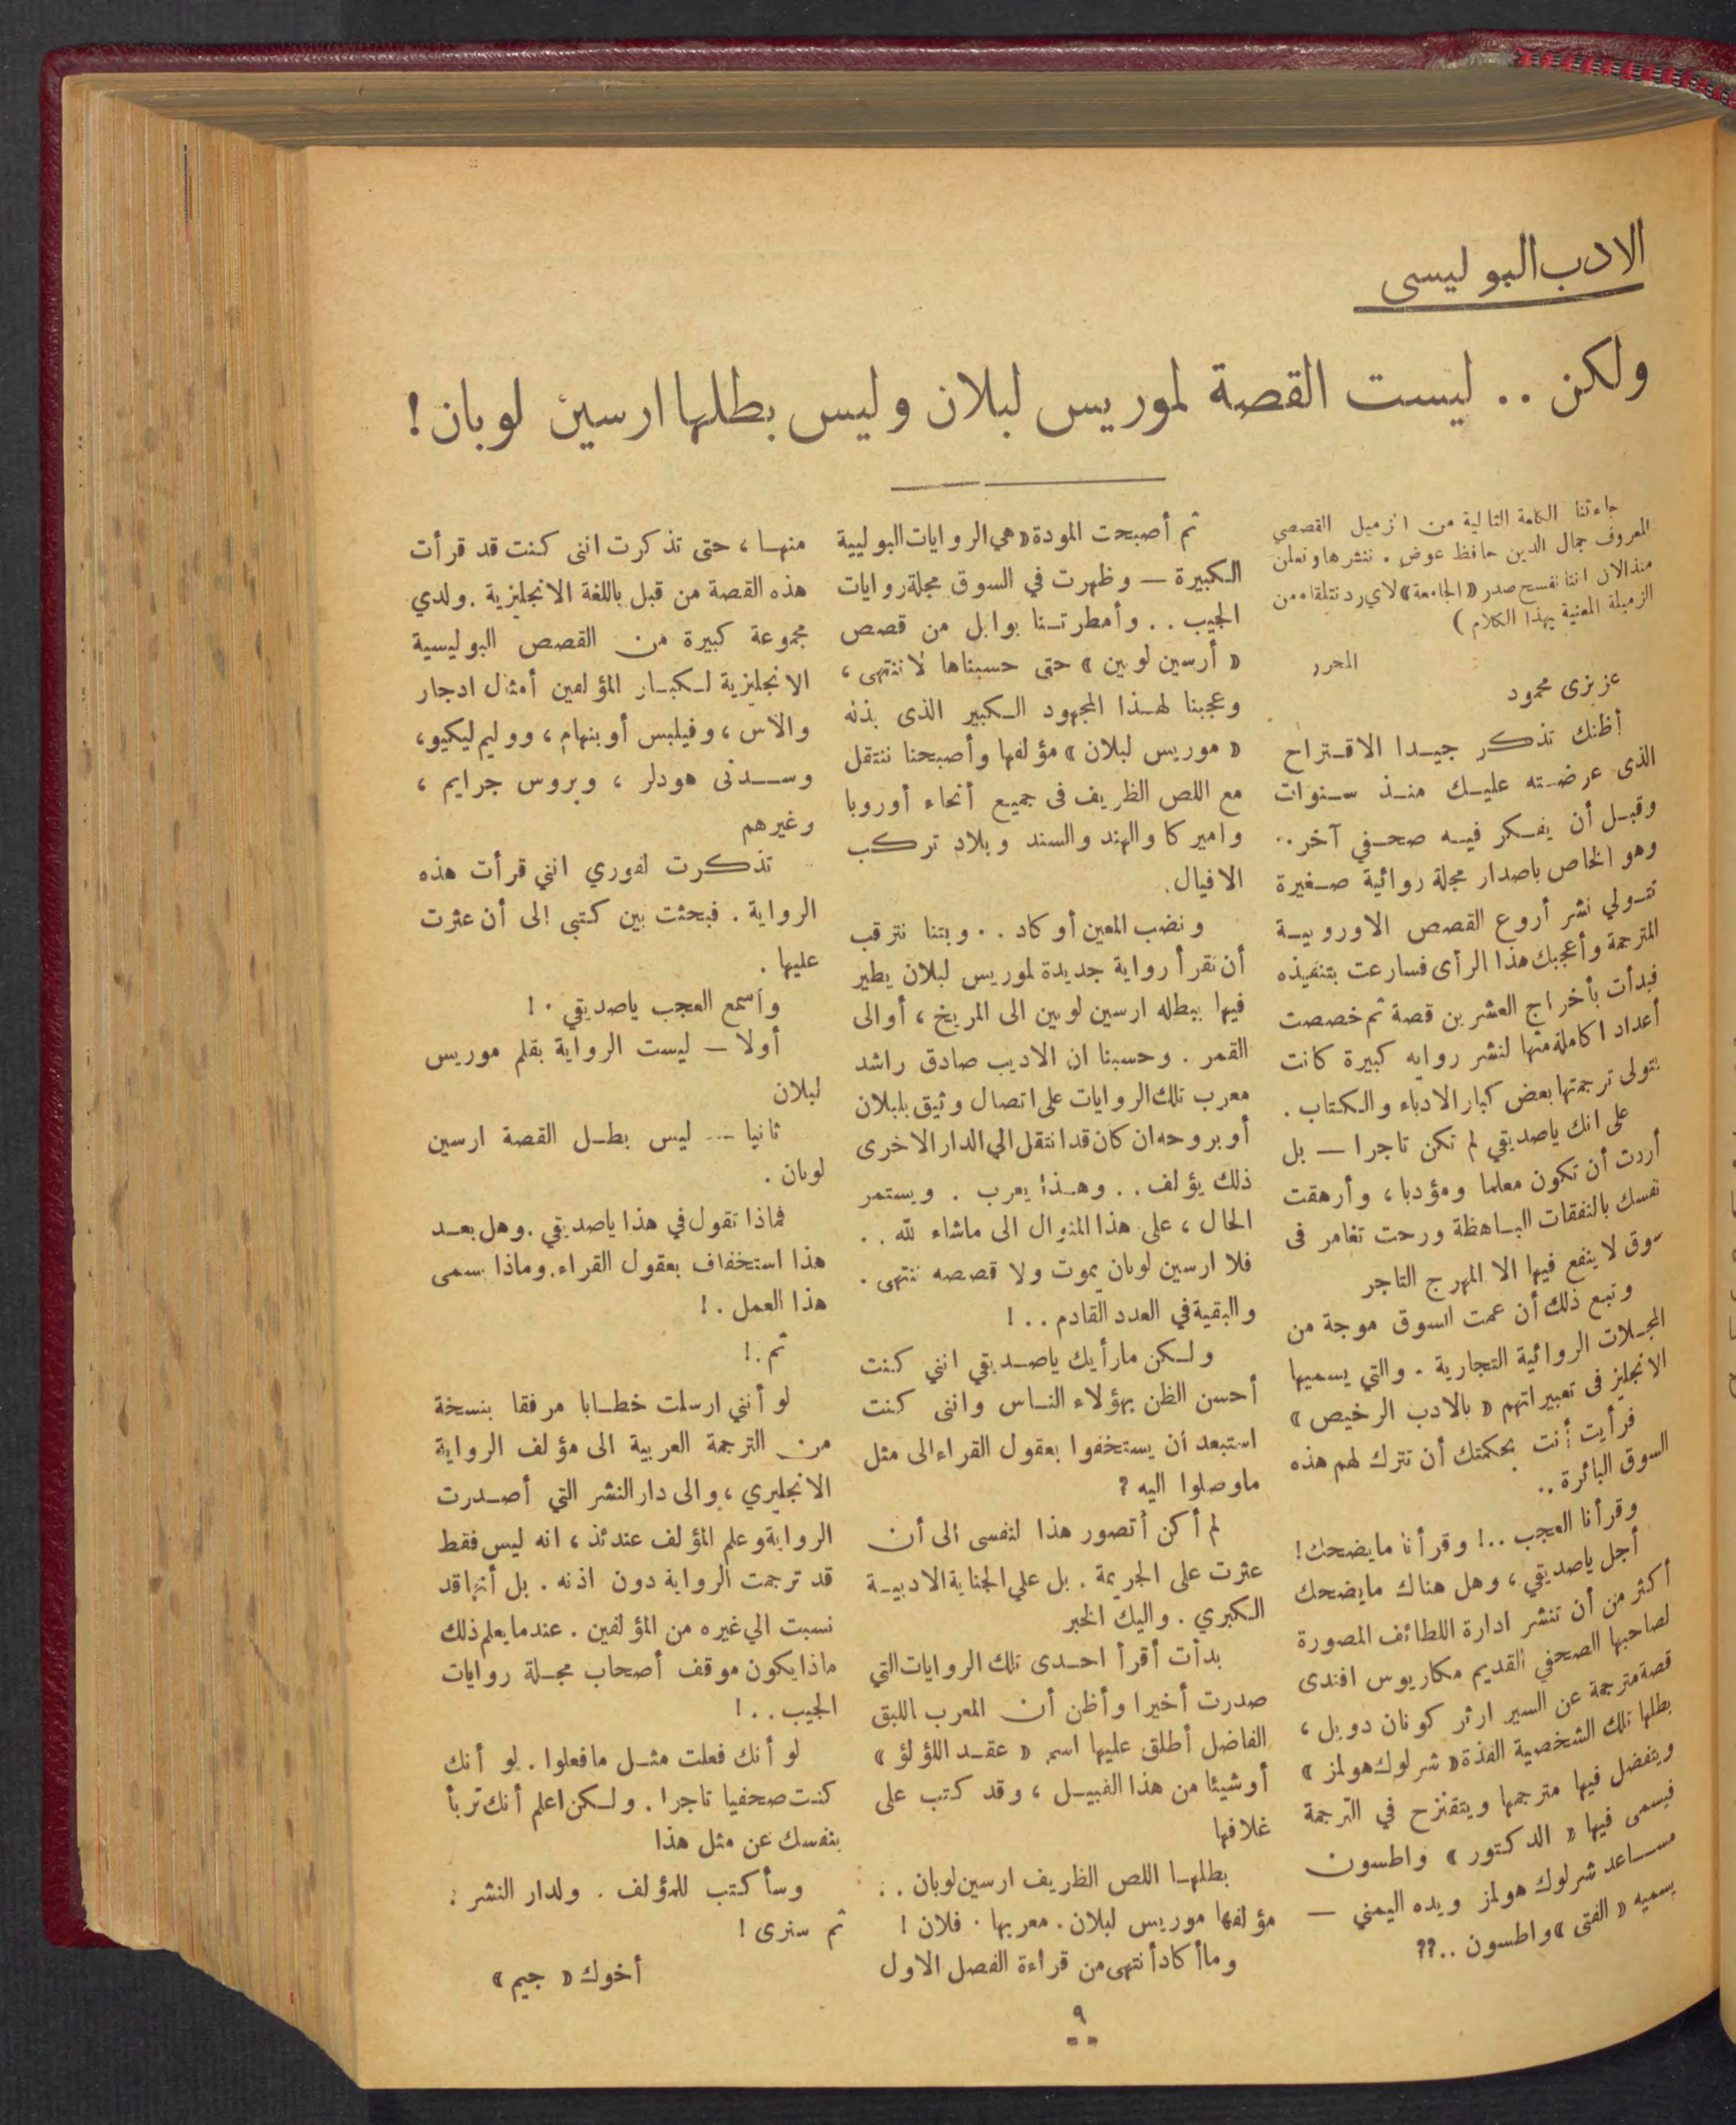 الادب البوليسى
ولكن .. ليست القصة لموريس لبلان وليس بطلها ارسين لوبان !
جاءتنا الكلمة التالية من الزميل القصصي
المعروف جمال الدين حافظ عوض . ننشرها ونعلن
منذ الآن اننا نفسح صدر « الجامعة » لاي رد نتلقاه من
الزميلة المعنية بهذا الكلام )
المحرر
عزيزى محمود
أظنك تذكر جيدا الاقتراح
الذى عرضته عليك منذ سنوات
وقبل أن يفكر فيه صحفي آخر ..
وهو الخاص باصدار مجلة روائية صغيرة
تتولي نشر أروع القصص الاوروبية
المترجمة وأعجبك هذا الرأى فسارعت بتنفيذه
فبدأت بأخراج العشرين قصة ثم خصصت
أعداد اكاملة منها لنشر روايه كبيرة كانت
يتولى ترجمتها بعض كبار الادباء والكتاب .
على انك ياصديقي لم تكن تاجرا — بل
أردت أن تكون معلما ومؤدبا ، وأرهقت
نفسك بالنفقات الباهظة ورحت تغامر فى
سوق لا ينفع فيها الا المهرج التاجر
وتبع ذلك أن عمت السوق موجة من
المجلات الروائية التجارية . والتي يسميها
الانجليز فى تعبيراتهم « بالادب الرخيص »
فرأيت أنت بحكمتك أن تترك لهم هذه
السوق البائرة ..
وقرأنا العجب ..! وقرأنا مايضحك !
أجل ياصديقي ، وهل هناك مايضحك
أكثر من أن تنشر ادارة اللطائف المصورة
لصاحبها الصحفي القديم مكاريوس افندى
قصة مترجمة عن السير ارثر كونان دويل ،
بطلها تلك الشخصية الفذة « شرلوك هولمز »
ويتفضل فيها مترجمها ويتقنزح في الترجمة
فيسمى فيها « الدكتور » واطسون
مساعد شرلوك هولمز ويده اليمني —
يسميه « الفتى » واطسون ..??
ثم أصبحت المودة « هي الروايات البوليية
الكبيرة — وظهرت في السوق مجلة روايات
الجيب .. وأمطرتنا بوابل من قصص
« أرسين لوبين » حتى حسبناها لا تنتهى ،
وعجبنا لهذا المجهود الكبير الذى بذله
« موريس لبلان » مؤلفها وأصبحنا ننتقل
مع اللص الظريف فى جميع أنحاء أوروبا
واميركا والهند والسند وبلاد تركب
الافيال .
ونضب المعين أو كاد .. وبتنا نترقب
أن نقرأ رواية جديدة لموريس لبلان يطير
فيها ببطله ارسين لوبين الى المريخ ، أو الى
القمر . وحسبنا ان الاديب صادق راشد
معرب تلك الروايات على اتصال وثيق بلبلان
أو بروحه ان كان قد انتقل الي الدار الاخرى
ذلك يؤلف .. وهذا يعرب . ويستمر
الحال ، على هذا المنوال الى ماشاء لله ..
فلا ارسين لوبان يموت ولا قصصه تنتهى .
والبقية في العدد القادم .. !
ولكن مارأيك ياصديقي انني كنت
أحسن الظن بهؤلاء الناس واننى كنت
استبعد أن يستخفوا بعقول القراء الى مثل
ماوصلوا اليه ?
لم أكن أتصور هذا لنفسى الى أن
عثرت على الجريمة . بل علي الجناية الادبية
الكبري . واليك الخبر
بدأت أقرأ احدى تلك الروايات التي
صدرت أخيرا وأظن أن المعرب اللبق
الفاضل أطلق عليها اسم « عقد اللؤلؤ »
أو شيئا من هذا القبيل ، وقد كتب على
غلافها
بطلها اللص الظريف ارسين لوبان ..
مؤلفها موريس لبلان . معربها . فلان !
وماأ كاد أنتهى من قراءة الفصل الاول
منها ، حتى تذكرت اننى كنت قد قرأت
هذه القصة من قبل باللغة الانجليزية . ولدي
مجموعة كبيرة من القصص البوليسية
الانجليزية لكبار المؤلفين أمثال ادجار
والاس ، وفيلبس أوبنهام ، ووليم ليكيو ،
وسدنى هودلر ، وبروس جرايم ،
وغيرهم
تذكرت لفوري انني قرأت هذه
الرواية . فبحثت بين كتبى الى أن عثرت
عليها .
وأسمع العجب ياصديقي . !
أولا — ليست الرواية بقلم موريس
لبلان
ثانيا — ليس بطل القصة ارسين
لوبان .
فماذا تقول في هذا ياصديقي . وهل بعد
هذا استخفاف بعقول القراء . وماذا يسمى
هذا العمل . !
ثم . !
لو أنني ارسلت خطابا مرفقا بنسخة
من الترجمة العربية الى مؤلف الرواية
الانجليزي ، والى دار النشر التي أصدرت
الرواية وعلم المؤلف عندئذ ، انه ليس فقط
قد ترجمت الرواية دون اذنه . بل أنها قد
نسبت الي غيره من المؤلفين . عندما يعلم ذلك
ماذا يكون موقف أصحاب مجلة روايات
الجيب .. !
لو أنك فعلت مثل مافعلوا . لو أنك
كنت صحفيا تاجرا . ولكن اعلم أنك تربأ
بنفسك عن مثل هذا
وسأكتب للمؤلف . ولدار النشر :
ثم سنرى !
أخوك « جيم »
٩